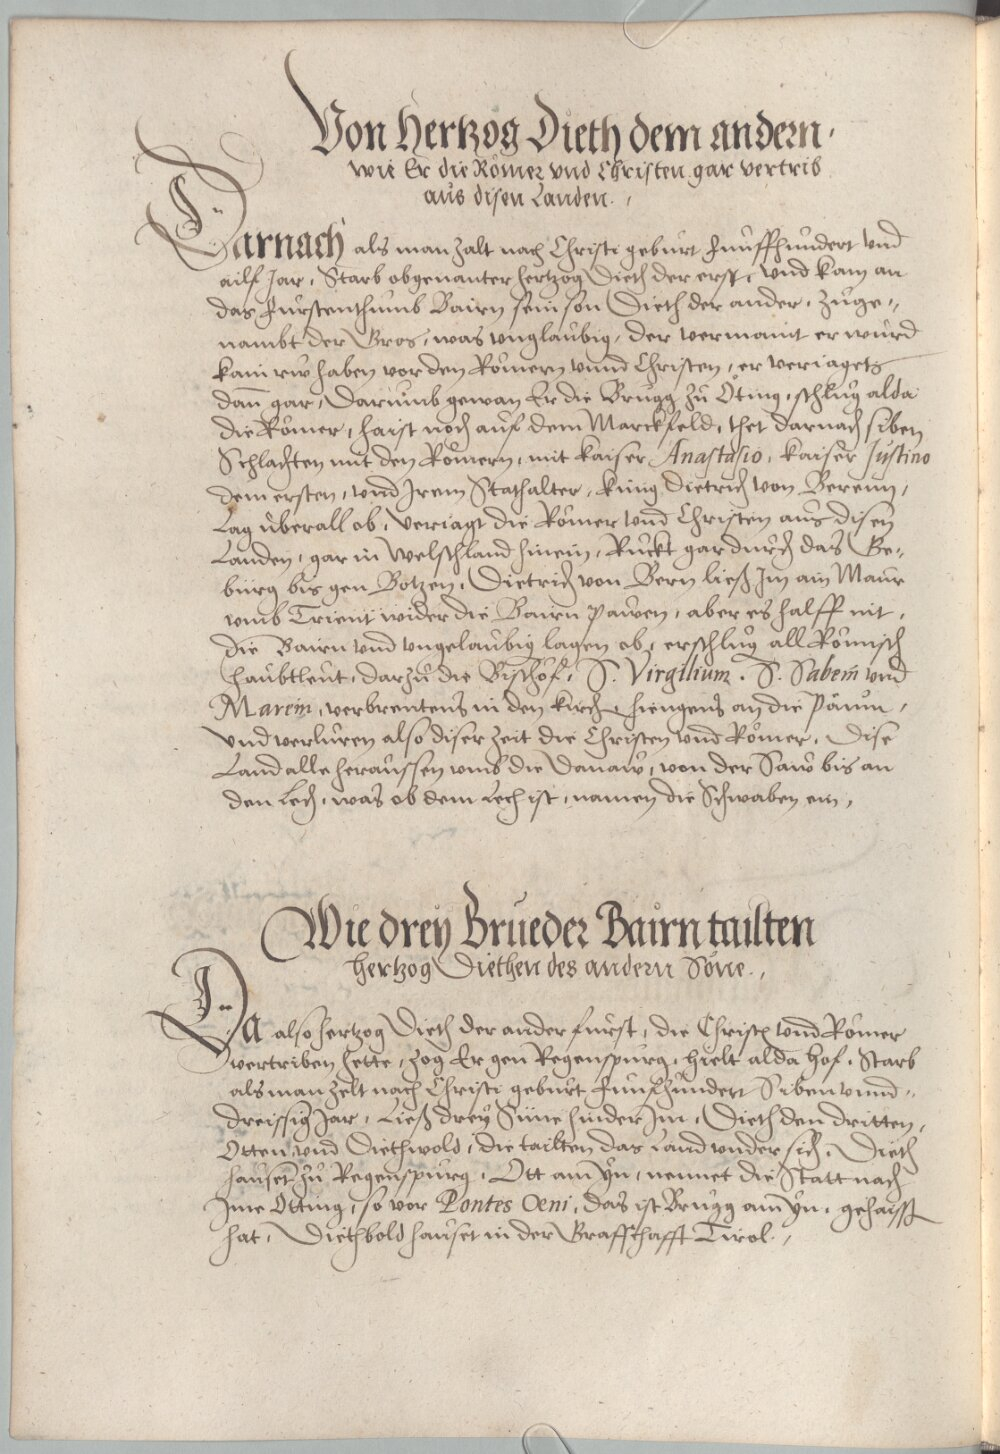 Von Hertzog Dieth dem andern.
wie Er die Römer vnd Christen gar vertrib
aus disen Landen.
Darnach als man zalt nach Christi geburt funffhundert vnd
ailf Jar, Starb obgenanter hertzog Dieth der erst, vnd kam an
das fürstenthumb Bairn sein son Dieth der ander, zuge-
nambt der Gros, was vnglaubig, der vermaint er würd
kain rw haben vor den Römern vnnd Christen, er veriagets
dan gar, Darumb gewan Er die Brugg zu Öting, schlug alda
die Römer, haist noch auf dem Marckfeld, thet darnach siben
Schlachten mit den Römern, mit kaiser Anastasio, kaiser Justino
dem ersten, vnd Jrem Stathalter, künig Dietrich von Berenn,
Lag überall ob, veriagt die Römer vnd Christen aus disen
Landen, gar in welschland hinein, Ruckt gar durch das Ge-
bürg bis gen Botzen, Dietrich von Bern ließ Im ain Maur
vmb Trient wider die Bairn pawen, aber es halff nit,
die Bairn vnd vngelaubig lagen ob, erschlug all Römisch
haubtleut, darzu die Bischof, S. Virgilium, S. Sabein vnd
Marein, verbrentens in den kirchen hiengens an die Päum,
vnd verluren also diser zeit die Christen vnd Römer, Dise
Land alle heraussen vmb die Danaw, von der Saw bis an
den Lech, was ob dem Lech ist, namen die Schwaben ein,
Wie drey Brueder Bairn tailten
hertzog Diethen des andern Söne.
Da also hertzog Dieth der ander fürst, die Christen vnd Römer
vertriben hette, zog Er gen Regenspurg, hielt alda hof, Starb
als man zelt nach Christi geburt funfhundert Siben vnnd
dreissig Jar, Ließ drey Süne hinder Im, Dieth den dritten,
Otten vnd Diethwold, die tailten das Land vnder sich, Dieth
hauset zu Regenspurg, Ott am yn, nennet die Statt nach
Ime Otting, so vor Pontes Oeni, das ist Brugg am yn, gehaisst
hat, Diethbold hauset in der Graffschafft Tirol.